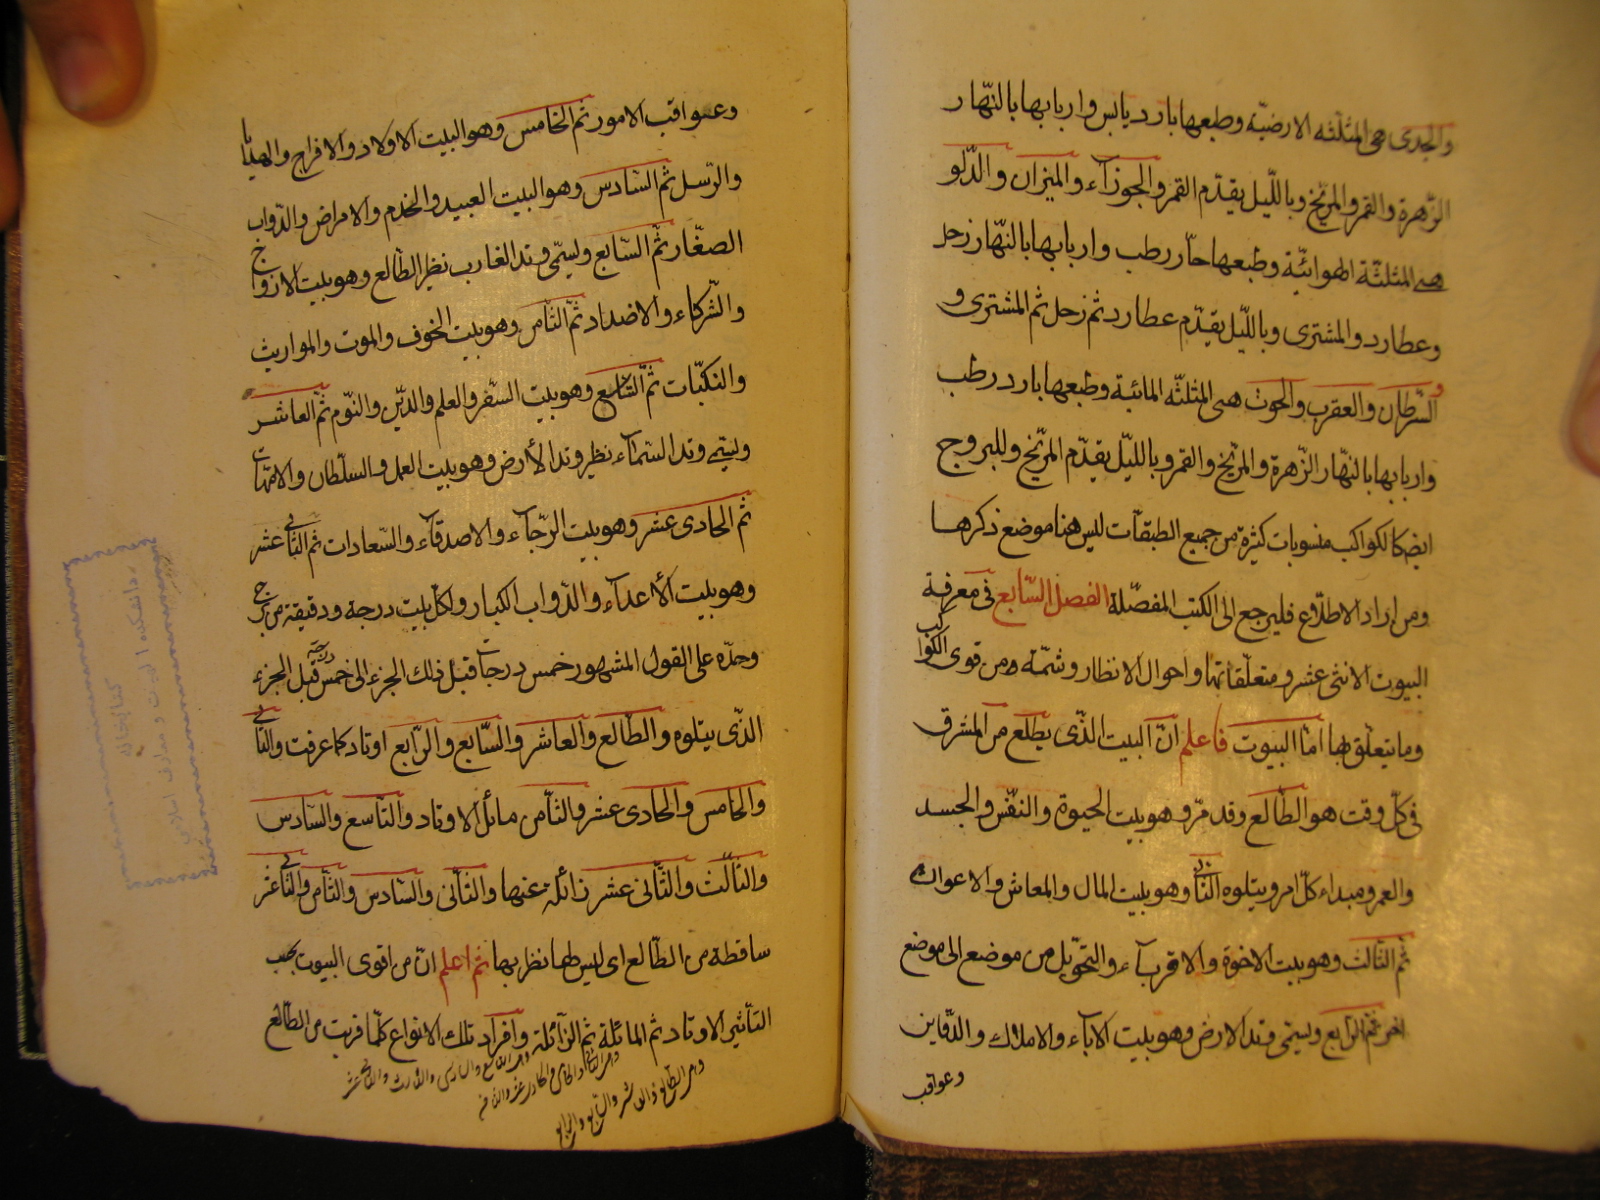 والجدى هى المثلثه الارضيّة وطبعها بارد يابس واربابها بالنّهار
الزّهرة والقمر والمرّيخ وباللّيل يقدّم القمر والجوزآء والميزان والدّلو
هى المثلثّة الهوائيّة وطبعها حارّ رطب واربابها بالنّهار زحل
وعطارد والمشترى وباللّيل يقدّم عطارد ثم زحل ثم المشترى و
السّرطان والعقرب والحوت هى المثلثّه المائية وطبعها بارد رطب
واربابها بالنّهار الزّهرة والمرّيخ والقمر وباللّيل يقدّم المرّيخ وللبروج
ايضا كالكواكب منسوبات كثيرة من جميع الطبقآت ليس هنا موضع ذكرها
ومن اراد الاطلّاع فليرجع الى الكتب المفصّلة الفصل السّابع فى معرفة
البيوت الاثنى عشر ومتعلّقاتها واحوال الانظار وشمّه من قوى الكواكب
وما يتعلّق بها امّا البيوت فاعلم انّ البيت الذّى يطلع من المشرق
فى كلّ وقت هو الطّالع وقد مرّ وهو بيت الحيوة والنفّس والجسد
والعمر ومبداء كلّ امر ويتلوه الثّانى وهو بيت المال والمعاش والاعوان
ثم الثّالث وهو بيت الاخوة والاقربآء والتحوّيل من موضع الى موضع
اخر ثم الرّابع ويسمّى وتد الارض وهو بيت الابآء والاملاك والدّفاين
وعواقب
وعواقب الامور ثم الخامس وهو البيت الاولاد والافراح والهدايا
والرّسل ثم السّادس وهو البيت العبيد والخدم والامراض والدّواب
الصغّار ثم السّابع ويسمّى وتد الغارب نظير الطّالع وهو بيت الازواج
والشّركاء والاضداد ثم الثّامن وهو بيت الخوف والموت والمواريث
والنكبّات ثم التّاسع وهو بيت السّفر والعلم والديّن والنّوم ثم العاشر
ويسمّى وتد السّمآء نظير وتد الأرض وهو بيت العمل والسلّطان والامّهات
ثم الحادى عشر وهو بيت الرّجآء والاصدقآء والسّعادات ثم الثّانى عشر
وهو بيت الأعدآء والدّواب الكبار ولكلّ بيت درجة ودقيقة من برج
وحدّه على القول المشهور خمس درجات قبل ذلك الجزء الى خمس درجة قبل الجزء
الذّى يتلوه والطّالع والعاشر والسّابع والرّابع اوتاد كما عرفت والثّانى
والخامس والحادى عشر والثّامن مائل الاوتاد والتّاسع والسّادس
والثّالث والثّانى عشر زائلة عنها والثّانى والسّادس والثّامن والثّانى عشر
ساقطة من الطّالع اى ليس لها نظر بها ثم اعلم انّ من اقوى البيوت بحسب
التأثير الاوتاد ثم المائلة ثم الزآئلة وافراد تلك الانواع كلّما قربت من الطّالع
وهو التاسع والسادس والثالث والثانى عشر
وهو الثانى والخامس والحادى عشر والثامن
وهو الطالع والعاشر والسابع والرابع
كتابخانه
دانشكده الهيات و معارف اسلامى